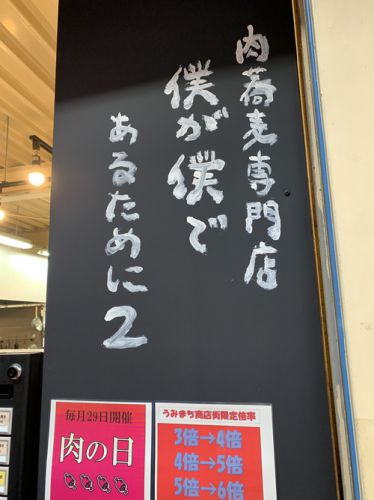 肉蕎麦専門店
僕が僕で
あるために2
毎月29日開催
肉の日
うみまち商店街限定倍率
3倍→4倍
4倍→5倍
5倍→6倍